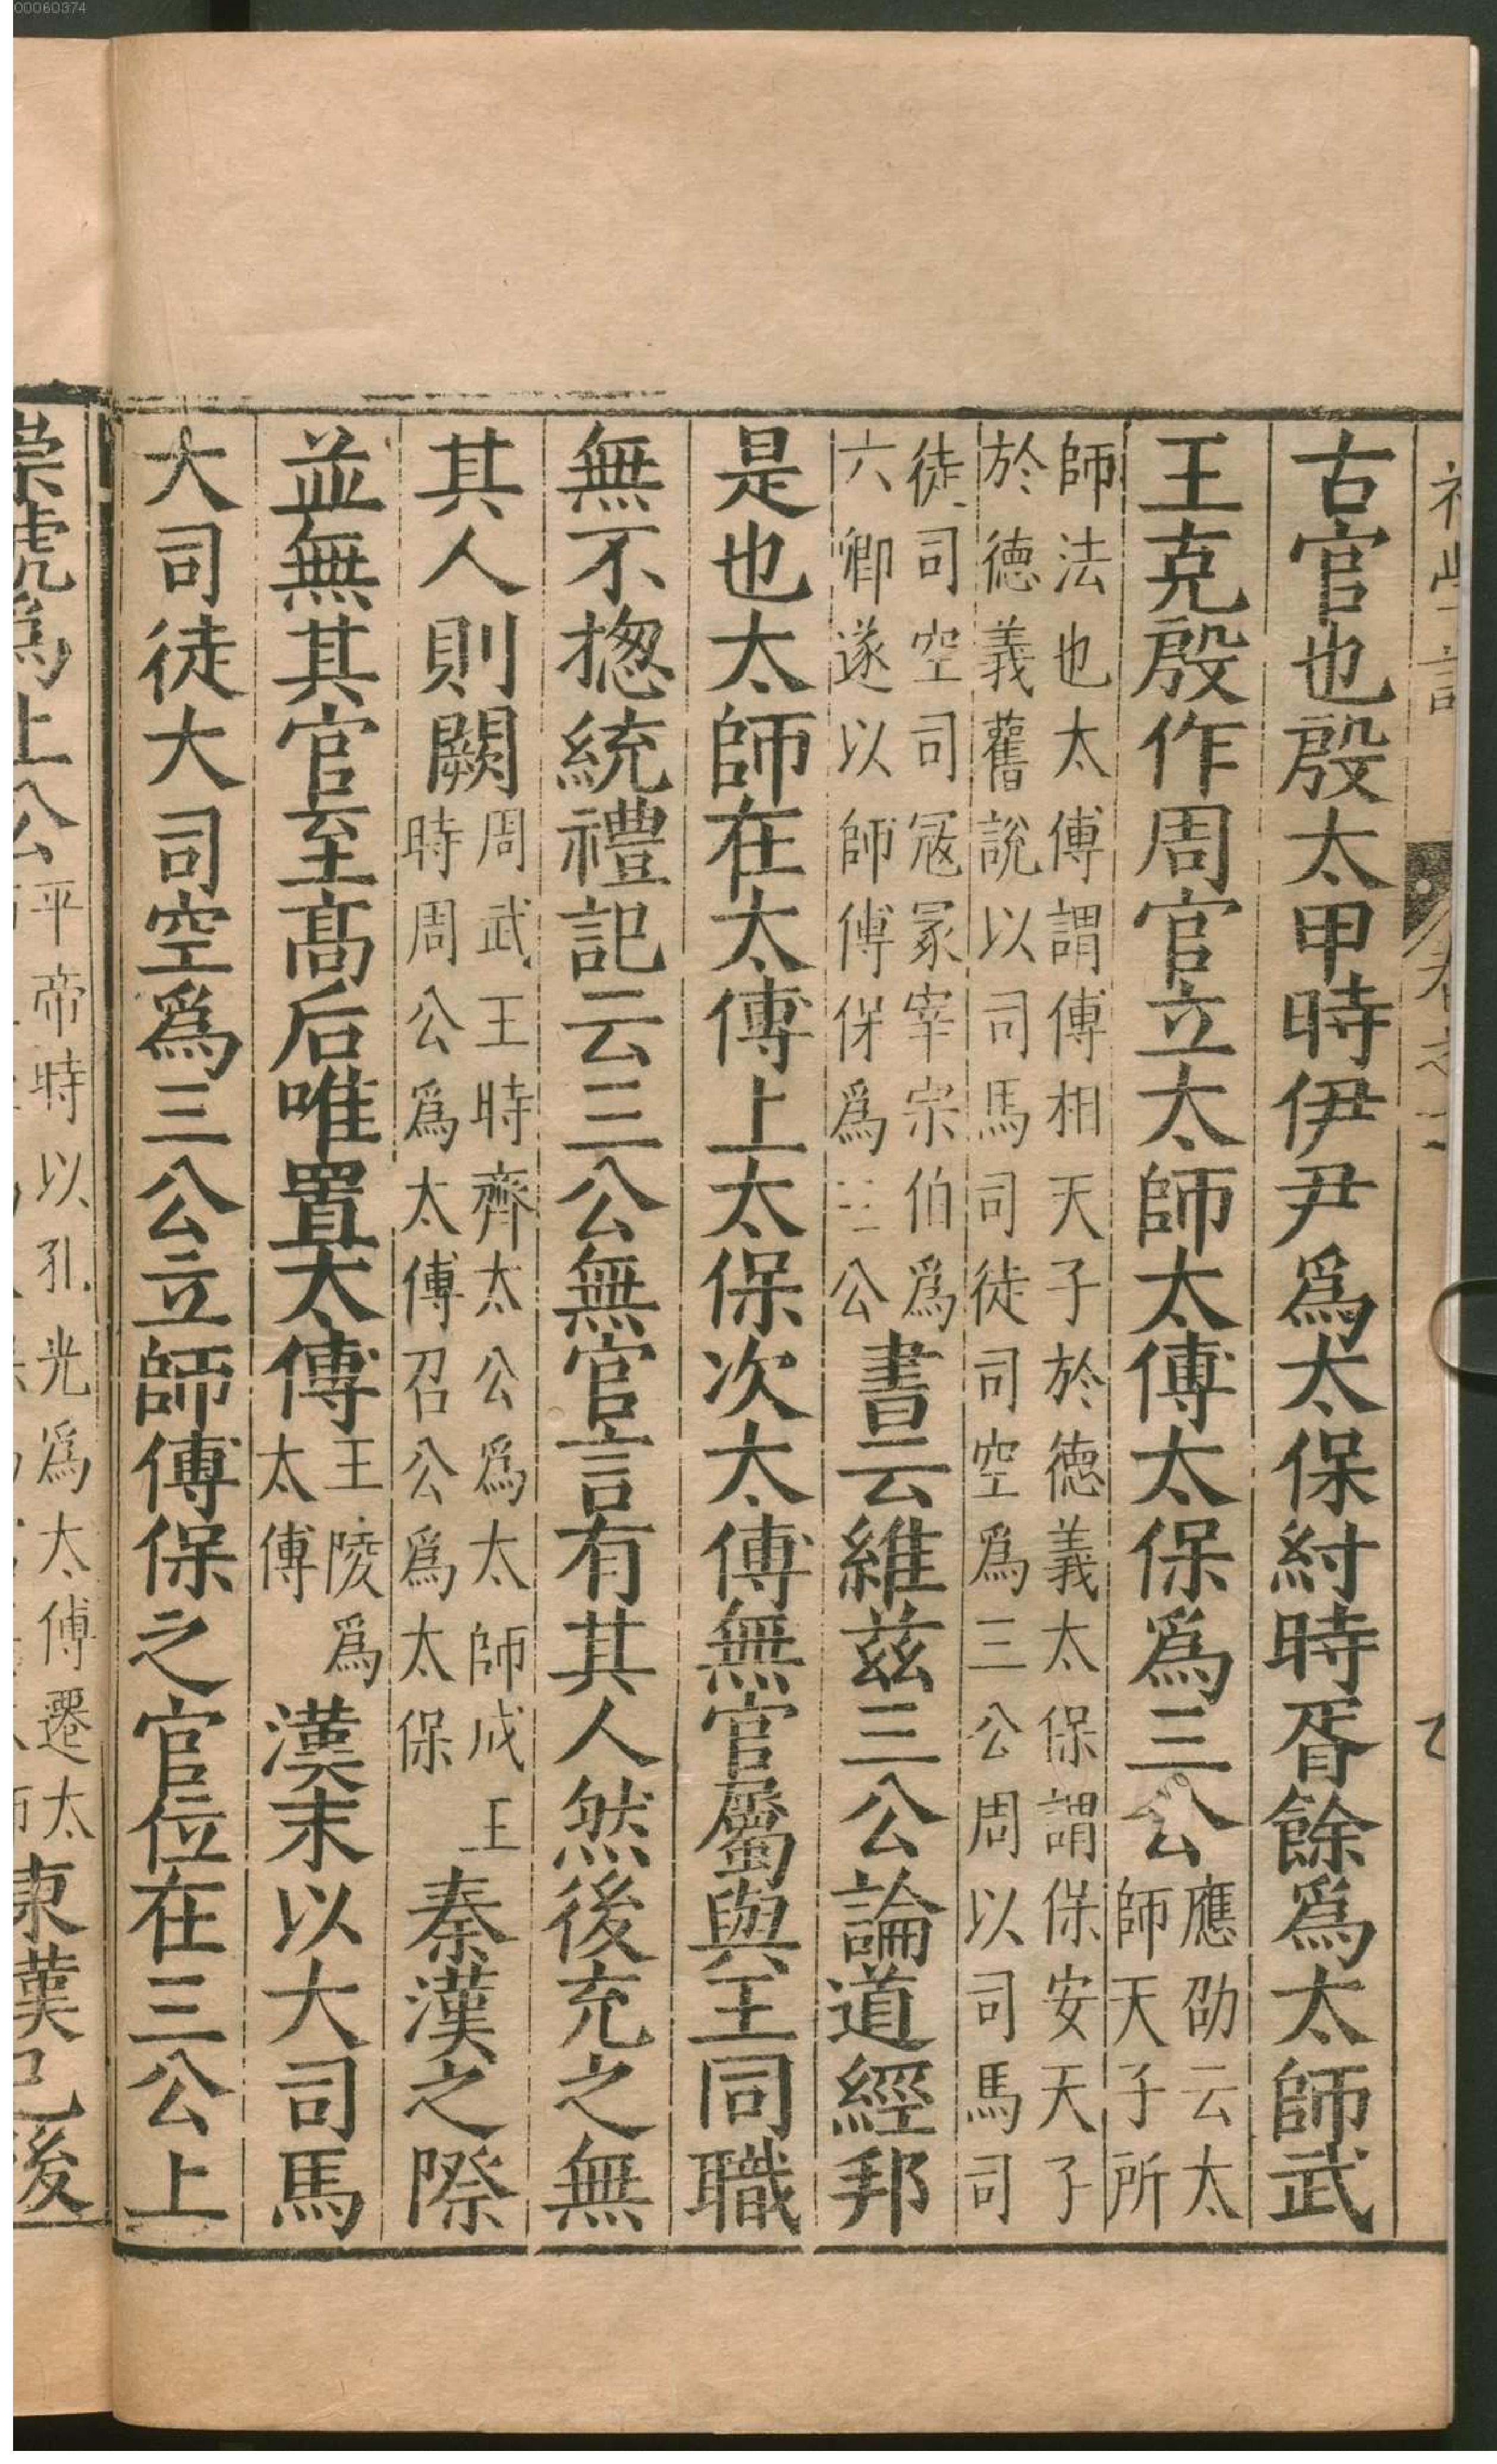 00060374
古官也殷太甲時伊尹爲太保紂時胥餘爲太師武
王克殷作周官立太師太傅太保爲三公應劭云太
師天子所
師法也太傅謂傅相天子於德義太保謂保安天子
於德義舊說以司馬司徒司空爲三公周以司馬司
徒司空司冦冢宰宗伯爲
六卿遂以師傅保爲三公書云維茲三公論道經邦
是也太師在太傅上太保次太傅無官屬與王同職
無不揔統禮記云三公無官言有其人然後充之無
其人則闕周武王時齊太公爲太師成王
時周公爲太傅召公爲太保秦漢之際
並無其官至髙后唯置太傅王陵爲
太傅漢末以大司馬
大司徒大司空爲三公立師傅保之官位在三公上
崇號爲上公平帝時以孔光爲太傅遷太
東漢已後